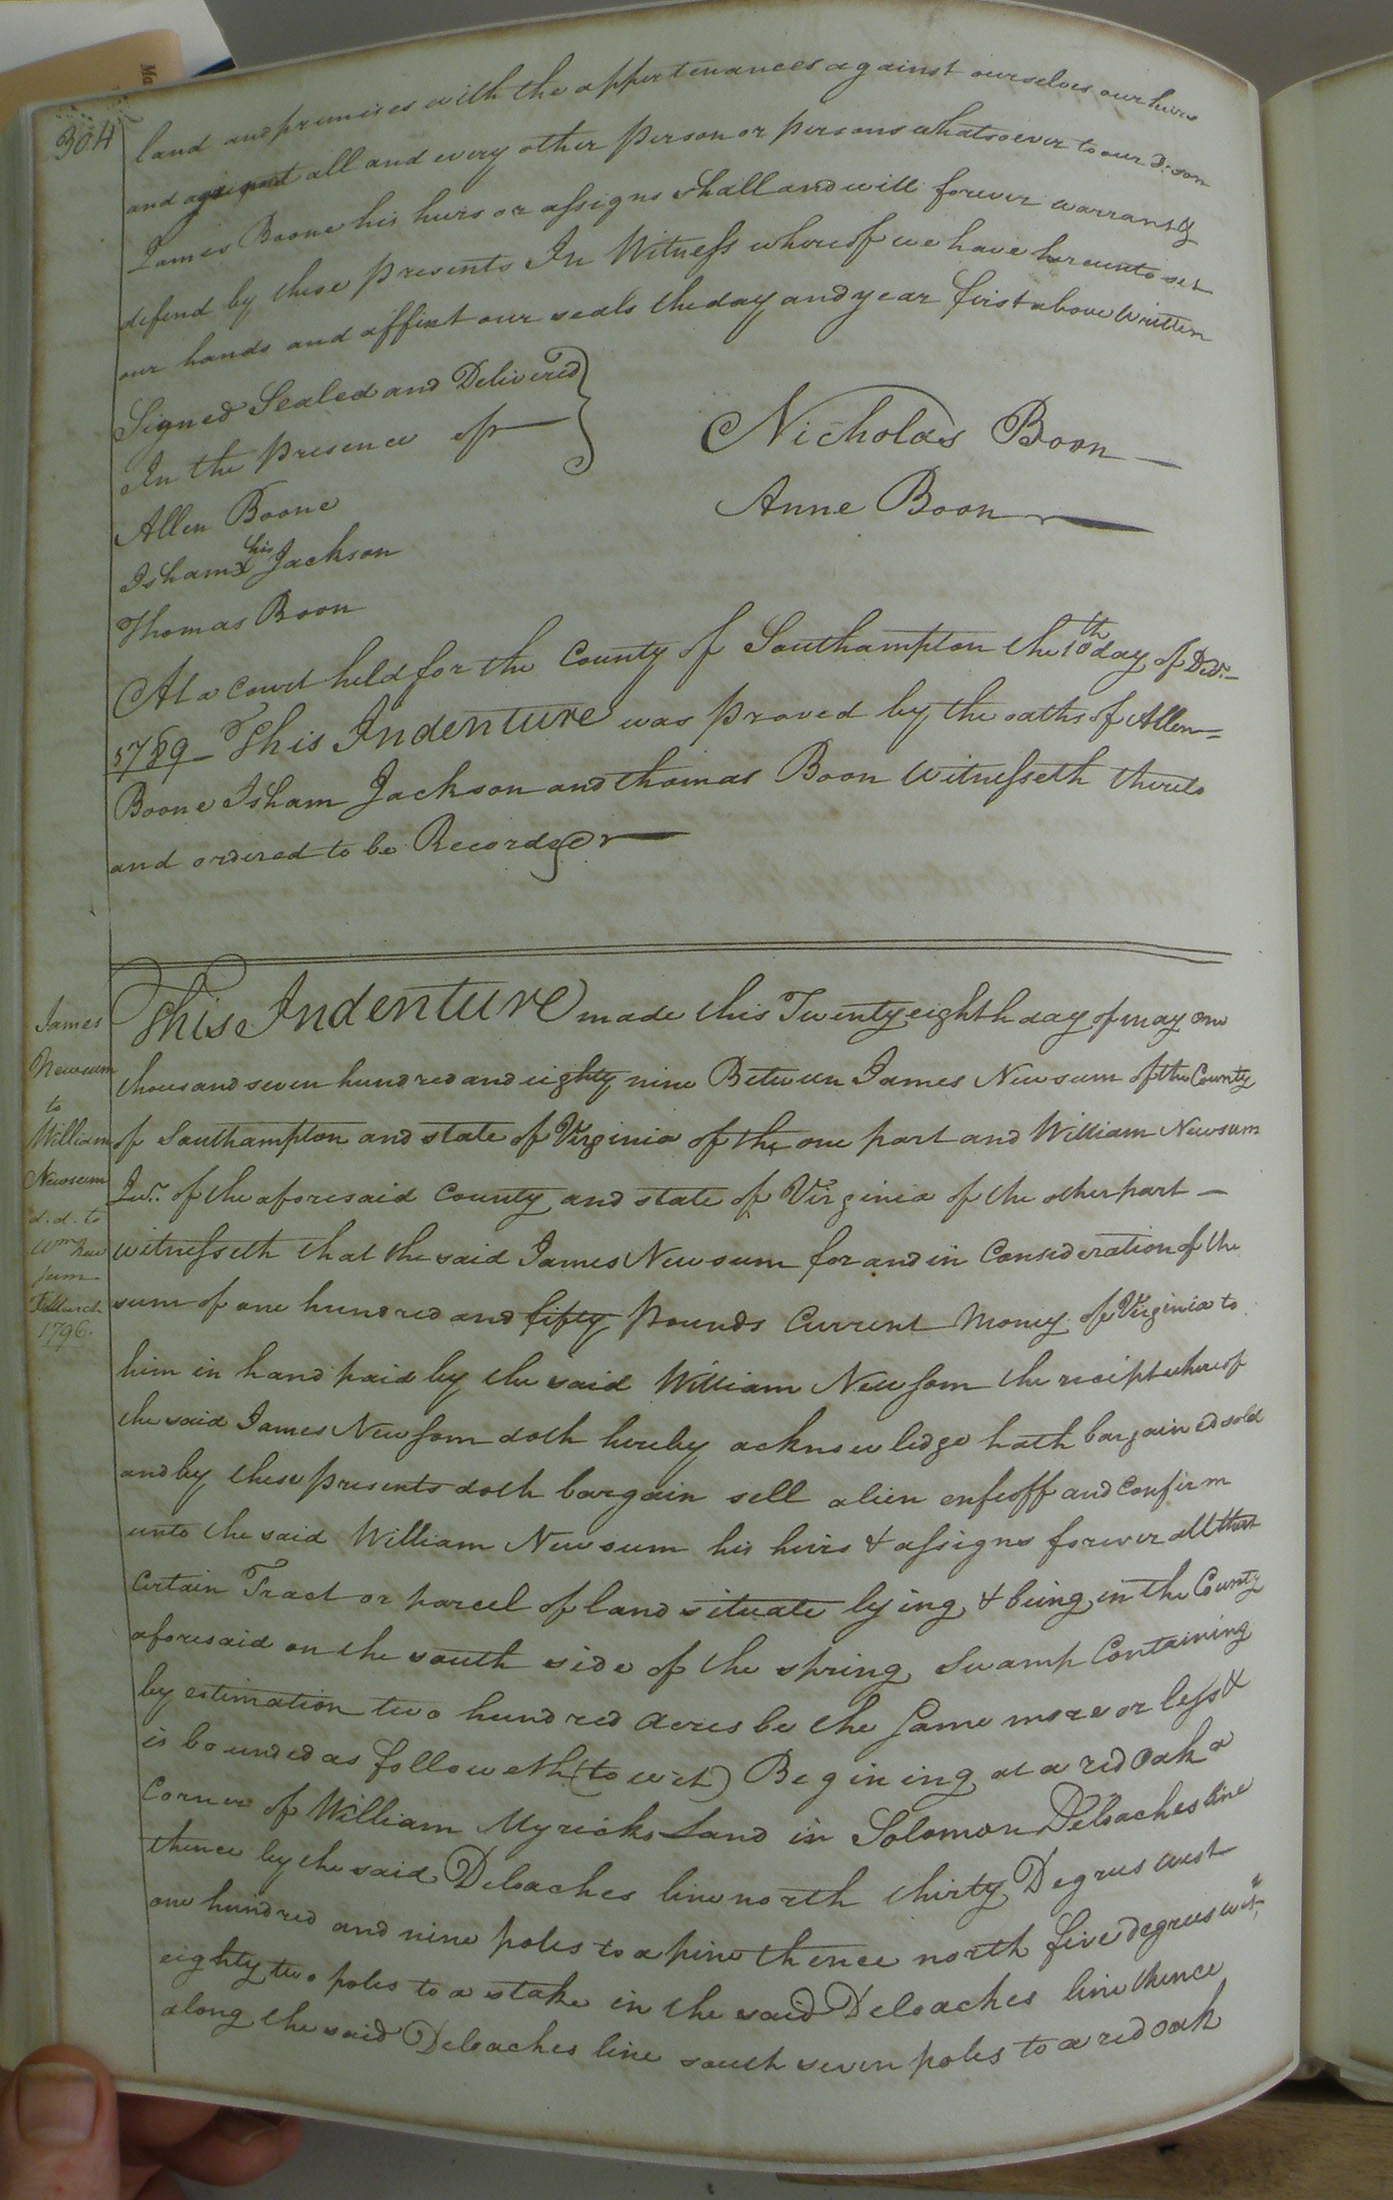 Ma
304
land and premises with the appertenances against ourselves our heirs
and against all and every other person or persons whatsoever to our Son
James Boone his heirs or assigns shall and will forever warrant &
defend by these presents In Witness whereof we have hereunto set
our hands and affixt our seals the day and year first above Written
Signed Sealed and Delivered
In the presence of
Nicholas Boon
Anne Boon
Allen Boone
his
Isham x Jackson
Thomas Boon
At a Court held for the County of Southampton the 10th day of Decr.
1789 This Indenture was proved by the oaths of Allen
Boone Isham Jackson and thomas Boon Witnesseth thereto
and ordered to be Recorded
James
Newsum
to
William
Newsum
d.d. to
Wm New
sum
March
1796.
This Indenture made this Twenty eighth day of may one
thousand seven hundred and eighty nine Between James Newsum of the County
of Southampton and state of Virginia of the one part and William Newsum
Junr. of the aforesaid County and state of Virginia of the other part
witnesseth that the said James Newsum for and in Consideration of the
sum of one hundred and fifty pounds Current Money of Virginia to
him in hand paid by the said William Newsom the reciept whereof
the said James Newsom doth hereby acknowledge hath bargained sold
and by these presents doth bargain sell alien enfeoff and Confirm
unto the said William Newsum his heirs & assigns forever all that
Certain Tract or parcel of land situate lying & being in the County
aforesaid on the south side of the spring Swamp Containing
by estimation two hundred acres be the same more or less &
is bounded as followeth (to wit) Begining at a red Oak a
Corner of William Myricks Land in Solomon Deloaches line
thence by the said Deloaches line north thirty Degrees west
one hundred and nine poles to a pine thence north five degrees wet
eighty two poles to a stake in the said Deloaches line thence
along the said Deloaches line south seven poles to a red oak